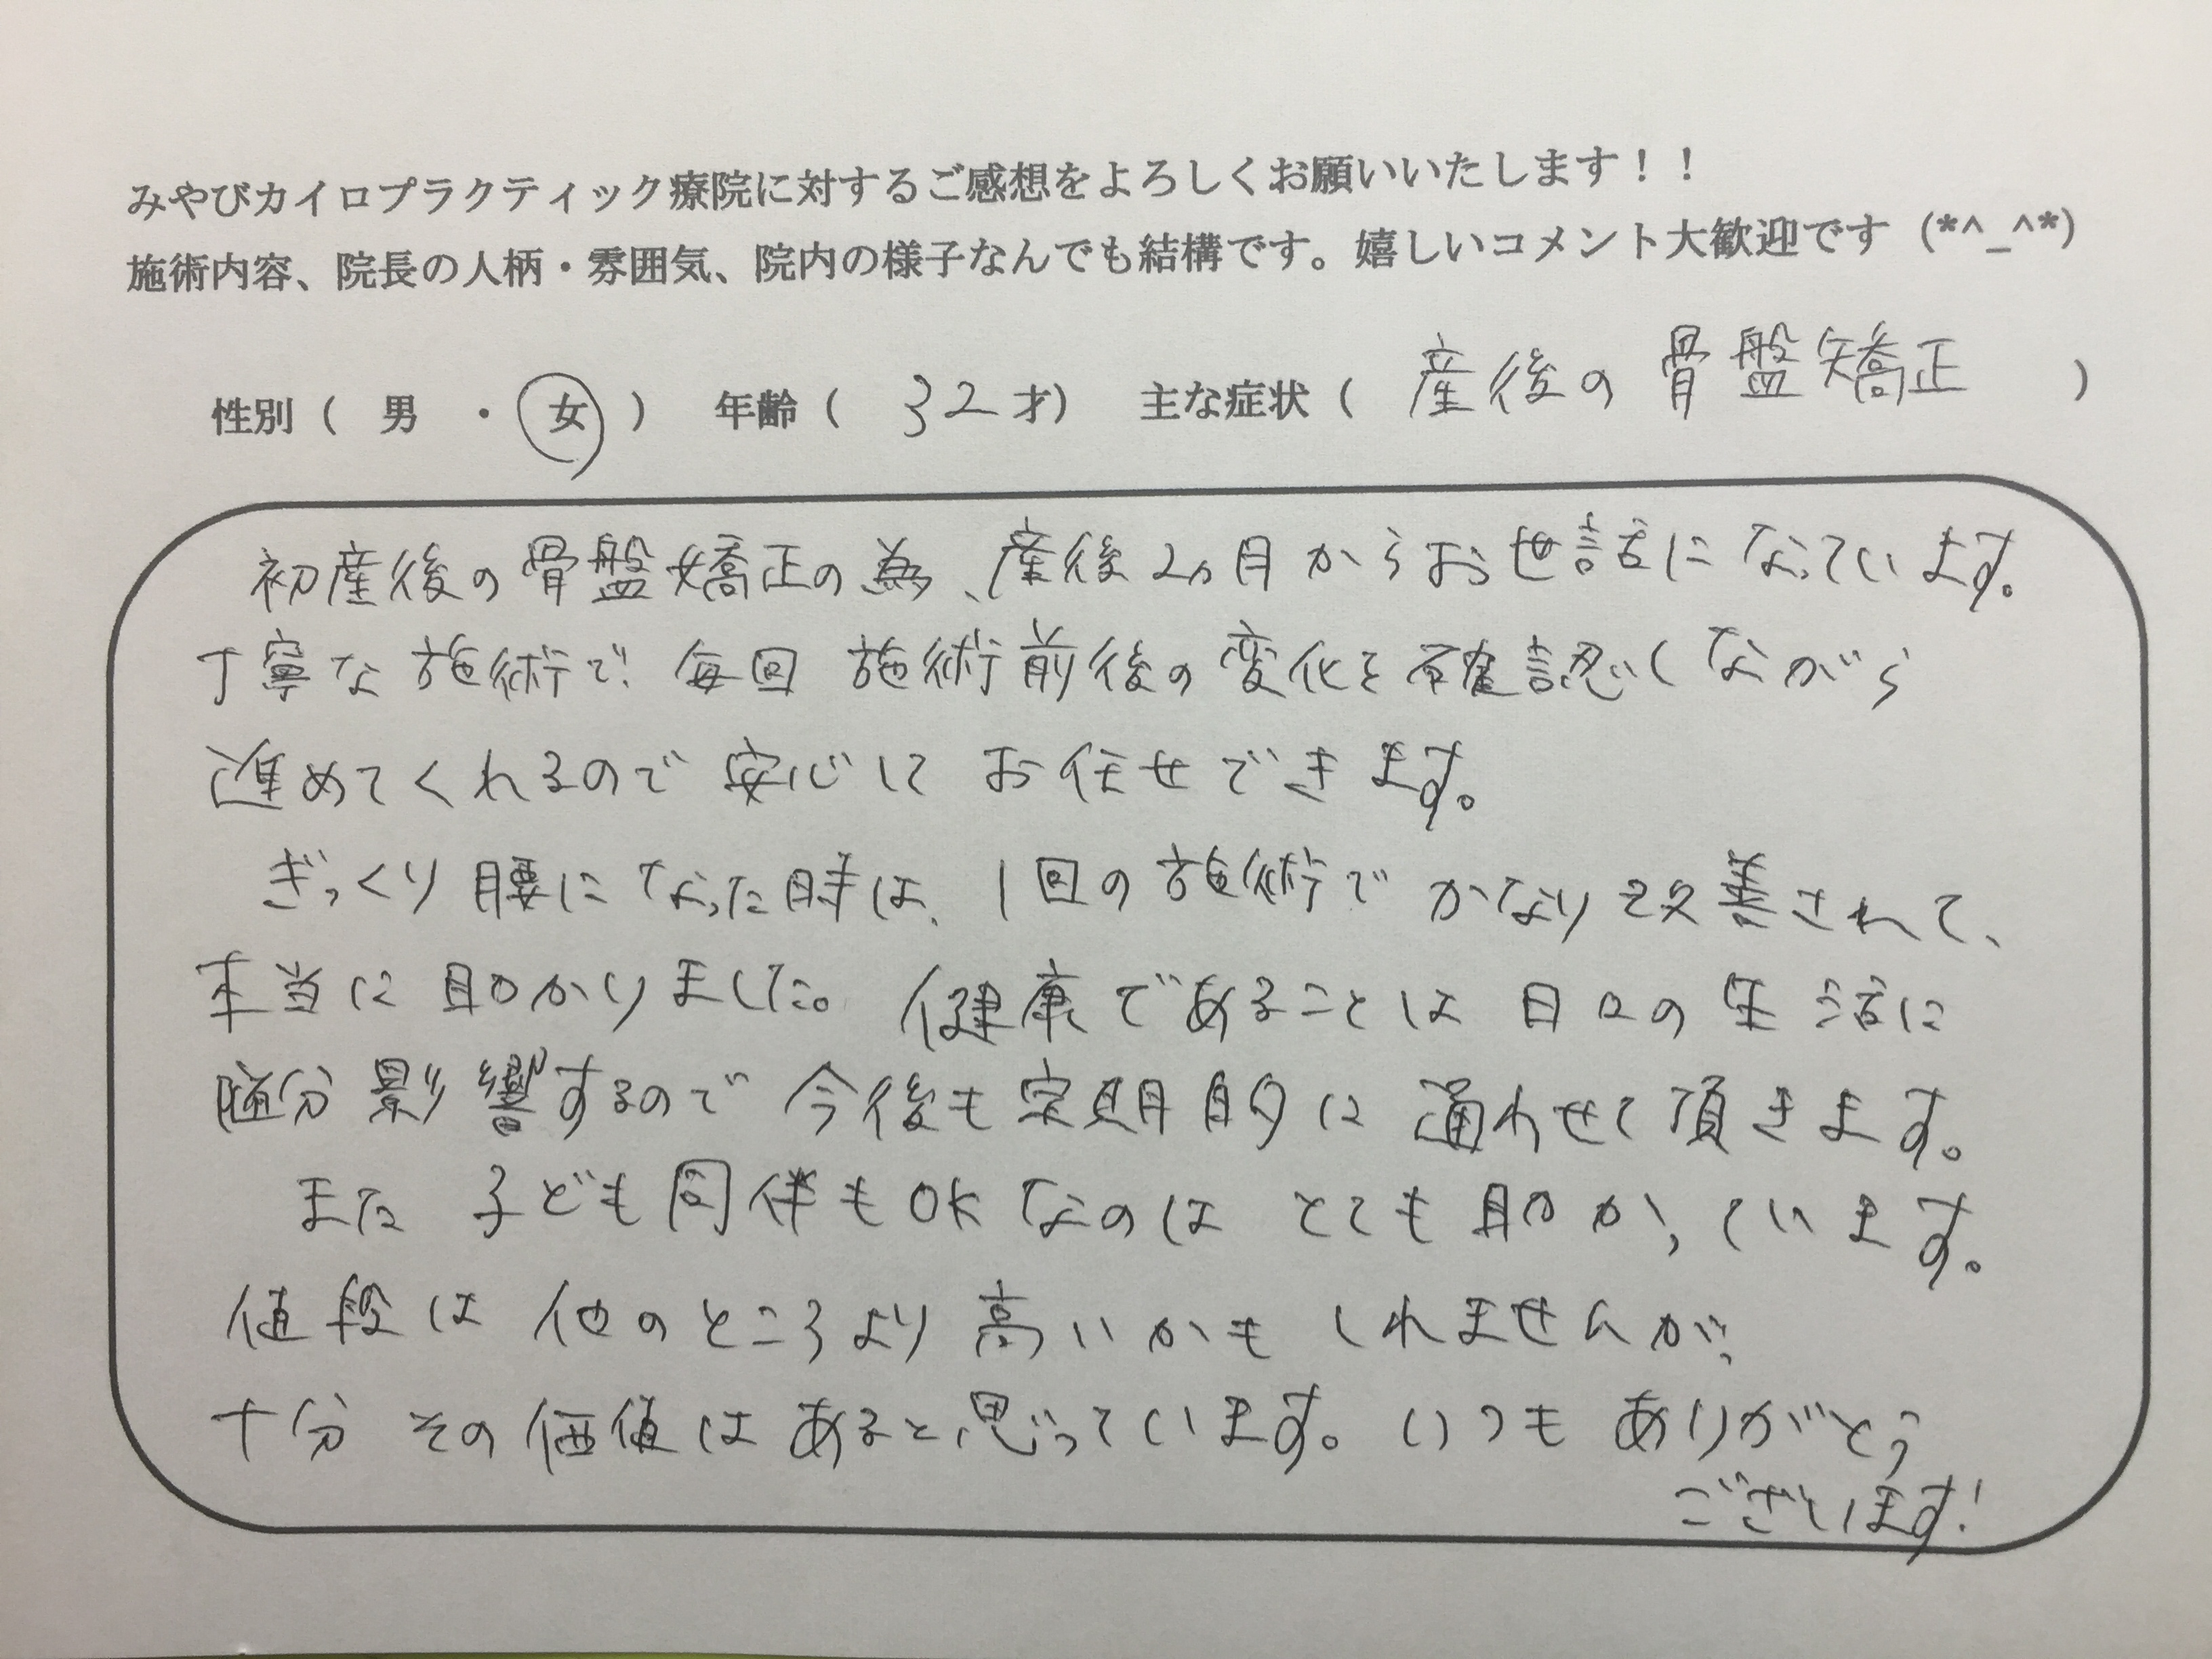 みやびカイロプラクティック療院に対するご感想をよろしくお願いいたします！！
施術内容、院長の人柄・雰囲気、院内の様子なんでも結構です。嬉しいコメント大歓迎です（*^_^*）
性別（ 男 ・ 女 ） 年齢（ 32才） 主な症状（ 産後の骨盤矯正 ）
初産後の骨盤矯正の為、産後2ヵ月からお世話になっています。
丁寧な施術で、毎回 施術前後の変化を確認しながら
進めてくれるので安心してお任せできます。
ぎっくり腰になった時は、1回の施術でかなり改善されて、
本当に助かりました。健康であることは日々の生活に
随分影響するので今後も定期的に通わせて頂きます。
また 子ども同伴もOKなのは とても助かっています。
値段は 他のところより高いかもしれませんが、
十分 その価値はあると思っています。いつもありがとう
ございます！